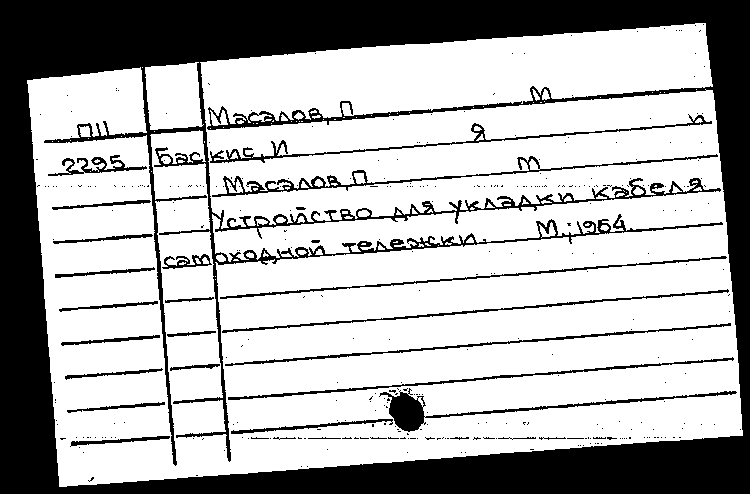 П11 Масалов, П М
2295 Баскис, И Я и
Масалов, П М
Устройство для укладки кабеля
самоходной тележки. М.; 1954.